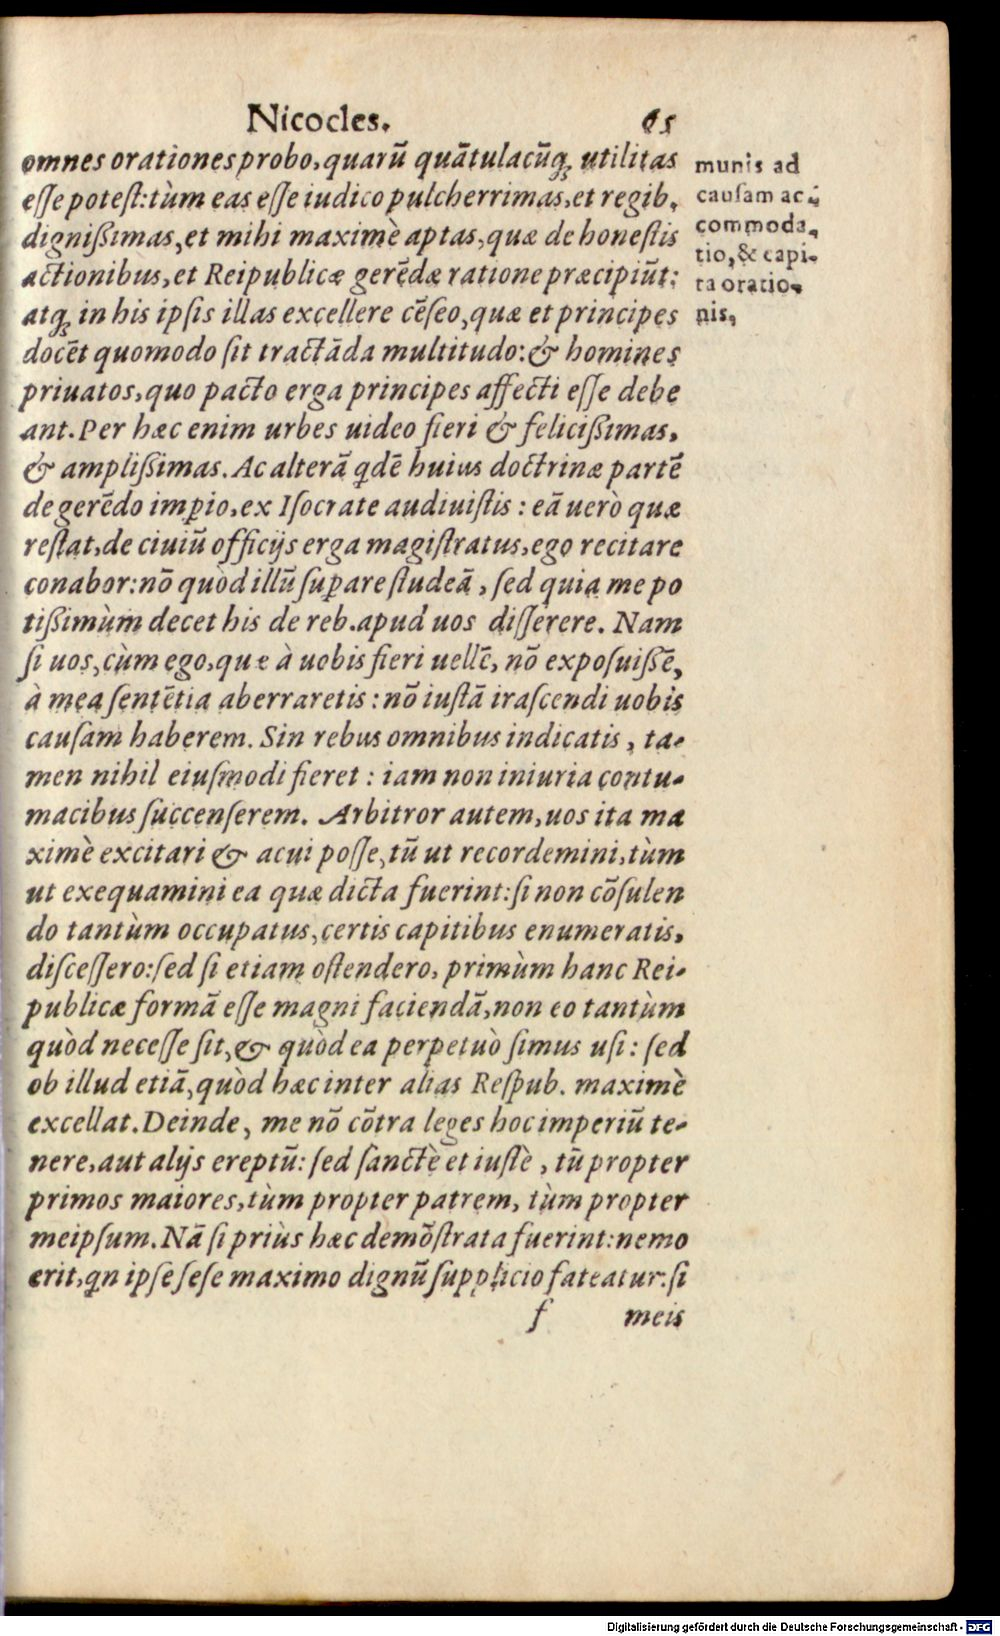 Nicocles. 65
omnes orationes probo, quarū quātulacūq; utilitas
esse potest: tùm eas esse iudico pulcherrimas, et regib.
dignißimas, et mihi maximè aptas, quæ de honestis
actionibus, et Reipublicæ gerēdæ ratione præcipiūt:
atq; in his ipsis illas excellere cēseo, quæ et principes
docēt quomodo sit tractāda multitudo: & homines
priuatos, quo pacto erga principes affecti esse debe
ant. Per hæc enim urbes uideo fieri & felicißimas,
& amplißimas. Ac alterā qdē huius doctrinæ partē
de gerēdo impio, ex Isocrate audiuistis: eā uerò quæ
restat, de ciuiū officijs erga magistratus, ego recitare
conabor: nō quòd illū supare studeā, sed quia me po
tißimùm decet his de reb. apud uos disserere. Nam
si uos, cùm ego, quæ à uobis fieri uellē, nō exposuißē,
à mea sentētia aberraretis: nō iustā irascendi uobis
causam haberem. Sin rebus omnibus indicatis, ta-
men nihil eiusmodi fieret: iam non iniuria contu-
macibus succenserem. Arbitror autem, uos ita ma
ximè excitari & acui posse, tū ut recordemini, tùm
ut exequamini ea quæ dicta fuerint: si non cōsulen
do tantùm occupatus, certis capitibus enumeratis,
discessero: sed si etiam ostendero, primùm hanc Rei-
publicæ formā esse magni faciendā, non eo tantùm
quòd necesse sit, & quòd ea perpetuò simus usi: sed
ob illud etiā, quòd hæc inter alias Respub. maximè
excellat. Deinde, me nō cōtra leges hoc imperiū te-
nere, aut alijs ereptū: sed sanctè et iustè, tū propter
primos maiores, tùm propter patrem, tùm propter
meipsum. Nā si priùs hæc demōstrata fuerint: nemo
erit, qn ipse sese maximo dignū supplicio fateatur: si
f meis
munis ad
causam ac-
commoda-
tio, & capi-
ta oratio-
nis.
Digitalisierung gefördert durch die Deutsche Forschungsgemeinschaft - DFG